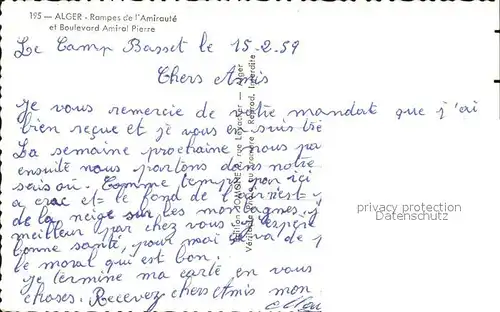 195 — ALGER - Rampes de l'Amirauté
et Boulevard Amiral Pierre
Le Camp Basset le 15-2-59
Chers Amis
Je vous remercie de votre mandat que j'ai
bien reçue et je vous en suis trè
La semaine prochaine nous pa
ensuite nous partons dans notre
Comme temps par ici
a crac et le fond de l'air est
de la neige sur les montagnes j
meilleur par chez vous j'espère
bonne santé, pour moi va de
le moral qui est bon.
Je termine ma carte en vous
choses. Recevez chers Amis mon
Véritable
Reprod. interdite
privacy protection
Datenschutz